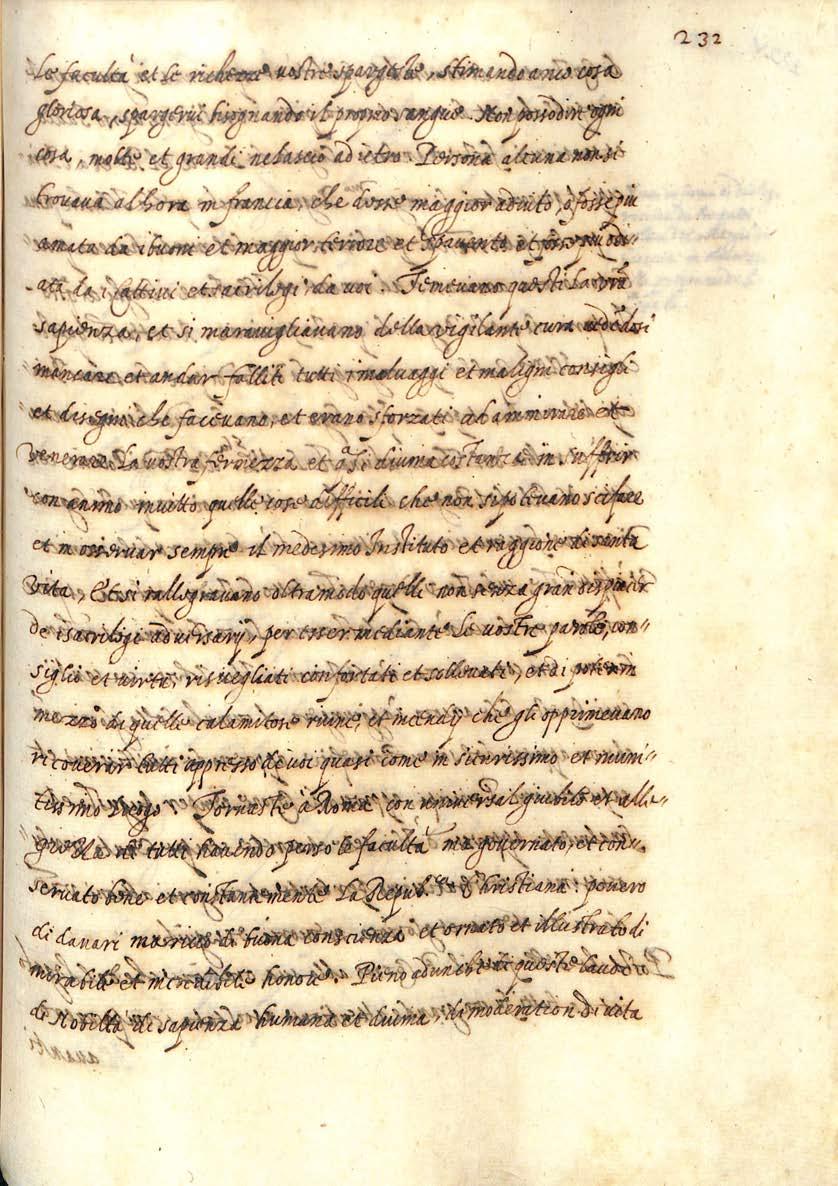 232
le facultà et le richezze vostre spargeste, stimando anco cosa
gloriosa, spargerui bisognando il proprio sangue. Non posso dire ogni
cosa, molte et grandi ne lascio adietro. Persona alcuna non si
trouaua al hora in francia, che desse maggior adiuto, o fosse piu
amata da i buoni et maggior terrore et spauento, et fosse piu odi-
ata da i Cattiui et sacrilegi, da uoi. Temeuano questi la vrã
sapienza, et si marauigliauano della vigilante cura uedẽdosi
mancare et andar falliti tutti i maluaggi et maligni consigli
et disegni che faceuano, et erano sforzati ad ammirare et
venerare la uostra fermezza et q̃si diuina costanza in suffrir
con animo inuitto quelle cose difficili che non si poteuano scifare
et in osseruar sempre il medesimo Instituto et raggione di santa
vita, Et si rallegrauano oltramodo quelli non senza gran dispiacer
de i sacrilegi aduersarij, per esser mediante le uostre parole, con"
siglio et uirtù, risuegliati confortati et solleuati, et di poter in
mezzo di quelle calamitose ruine, et incendij che gli opprimeuano
ricouerar tutti appresso de uoi quasi come in sicurissimo et muni"
tissimo luogo. Tornaste à Roma con uniuersal giubilo et alle"
grezza di tutti hauendo perso le facultà ma gouernato, et con"
seruato bene et constantemente la Repub.ca Christiana: pouero
di danari ma ricco di buona conscienza et ornato et illustrato di
mirabile et incredibile honore. Pieno adunche di queste laudi
di Nobiltà di sapienza humana et diuina, di moderation di uita